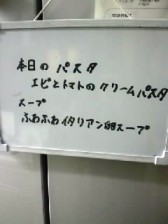 本日の パスタ
エビとトマトのクリームパスタ
スープ
ふわふわイタリアン卵スープ